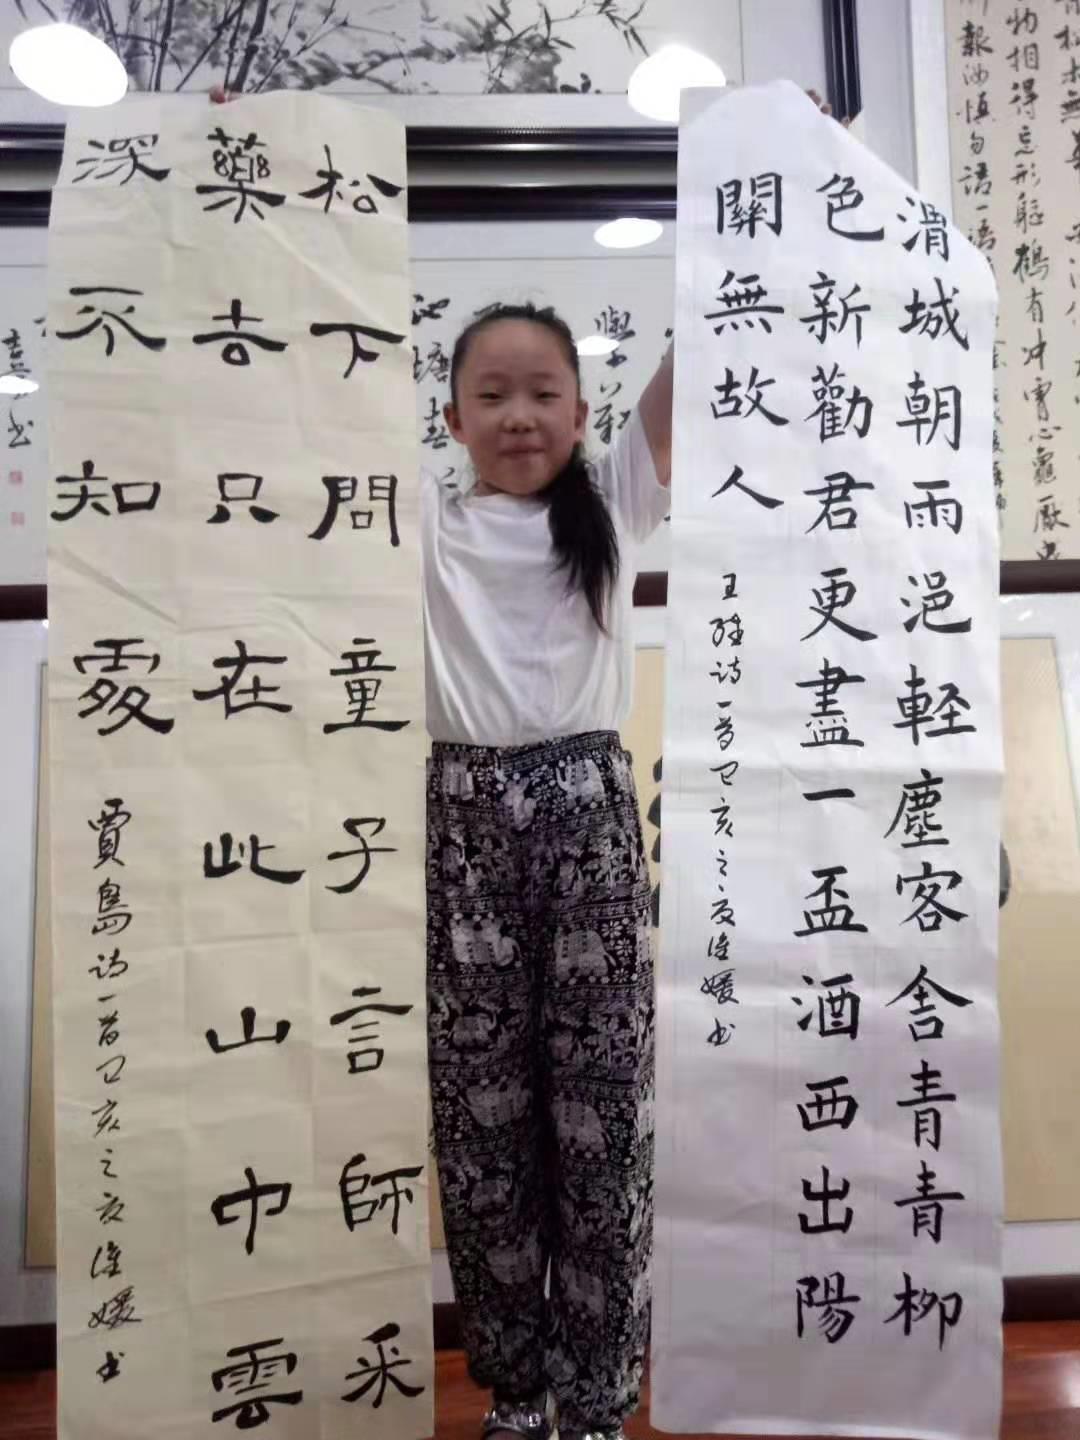 渭城朝雨浥軽塵客舍青青柳
色新勸君更盡一盃酒西出陽
關無故人
王維詩一首己亥之夏媛书
松下問童子言師采
藥去只在此山中雲
深不知處
賈島詩一首己亥之夏媛书
物相得忘形軀鶴有冲霄心龜厭曳
報汝慎勿語一語
學
塘春